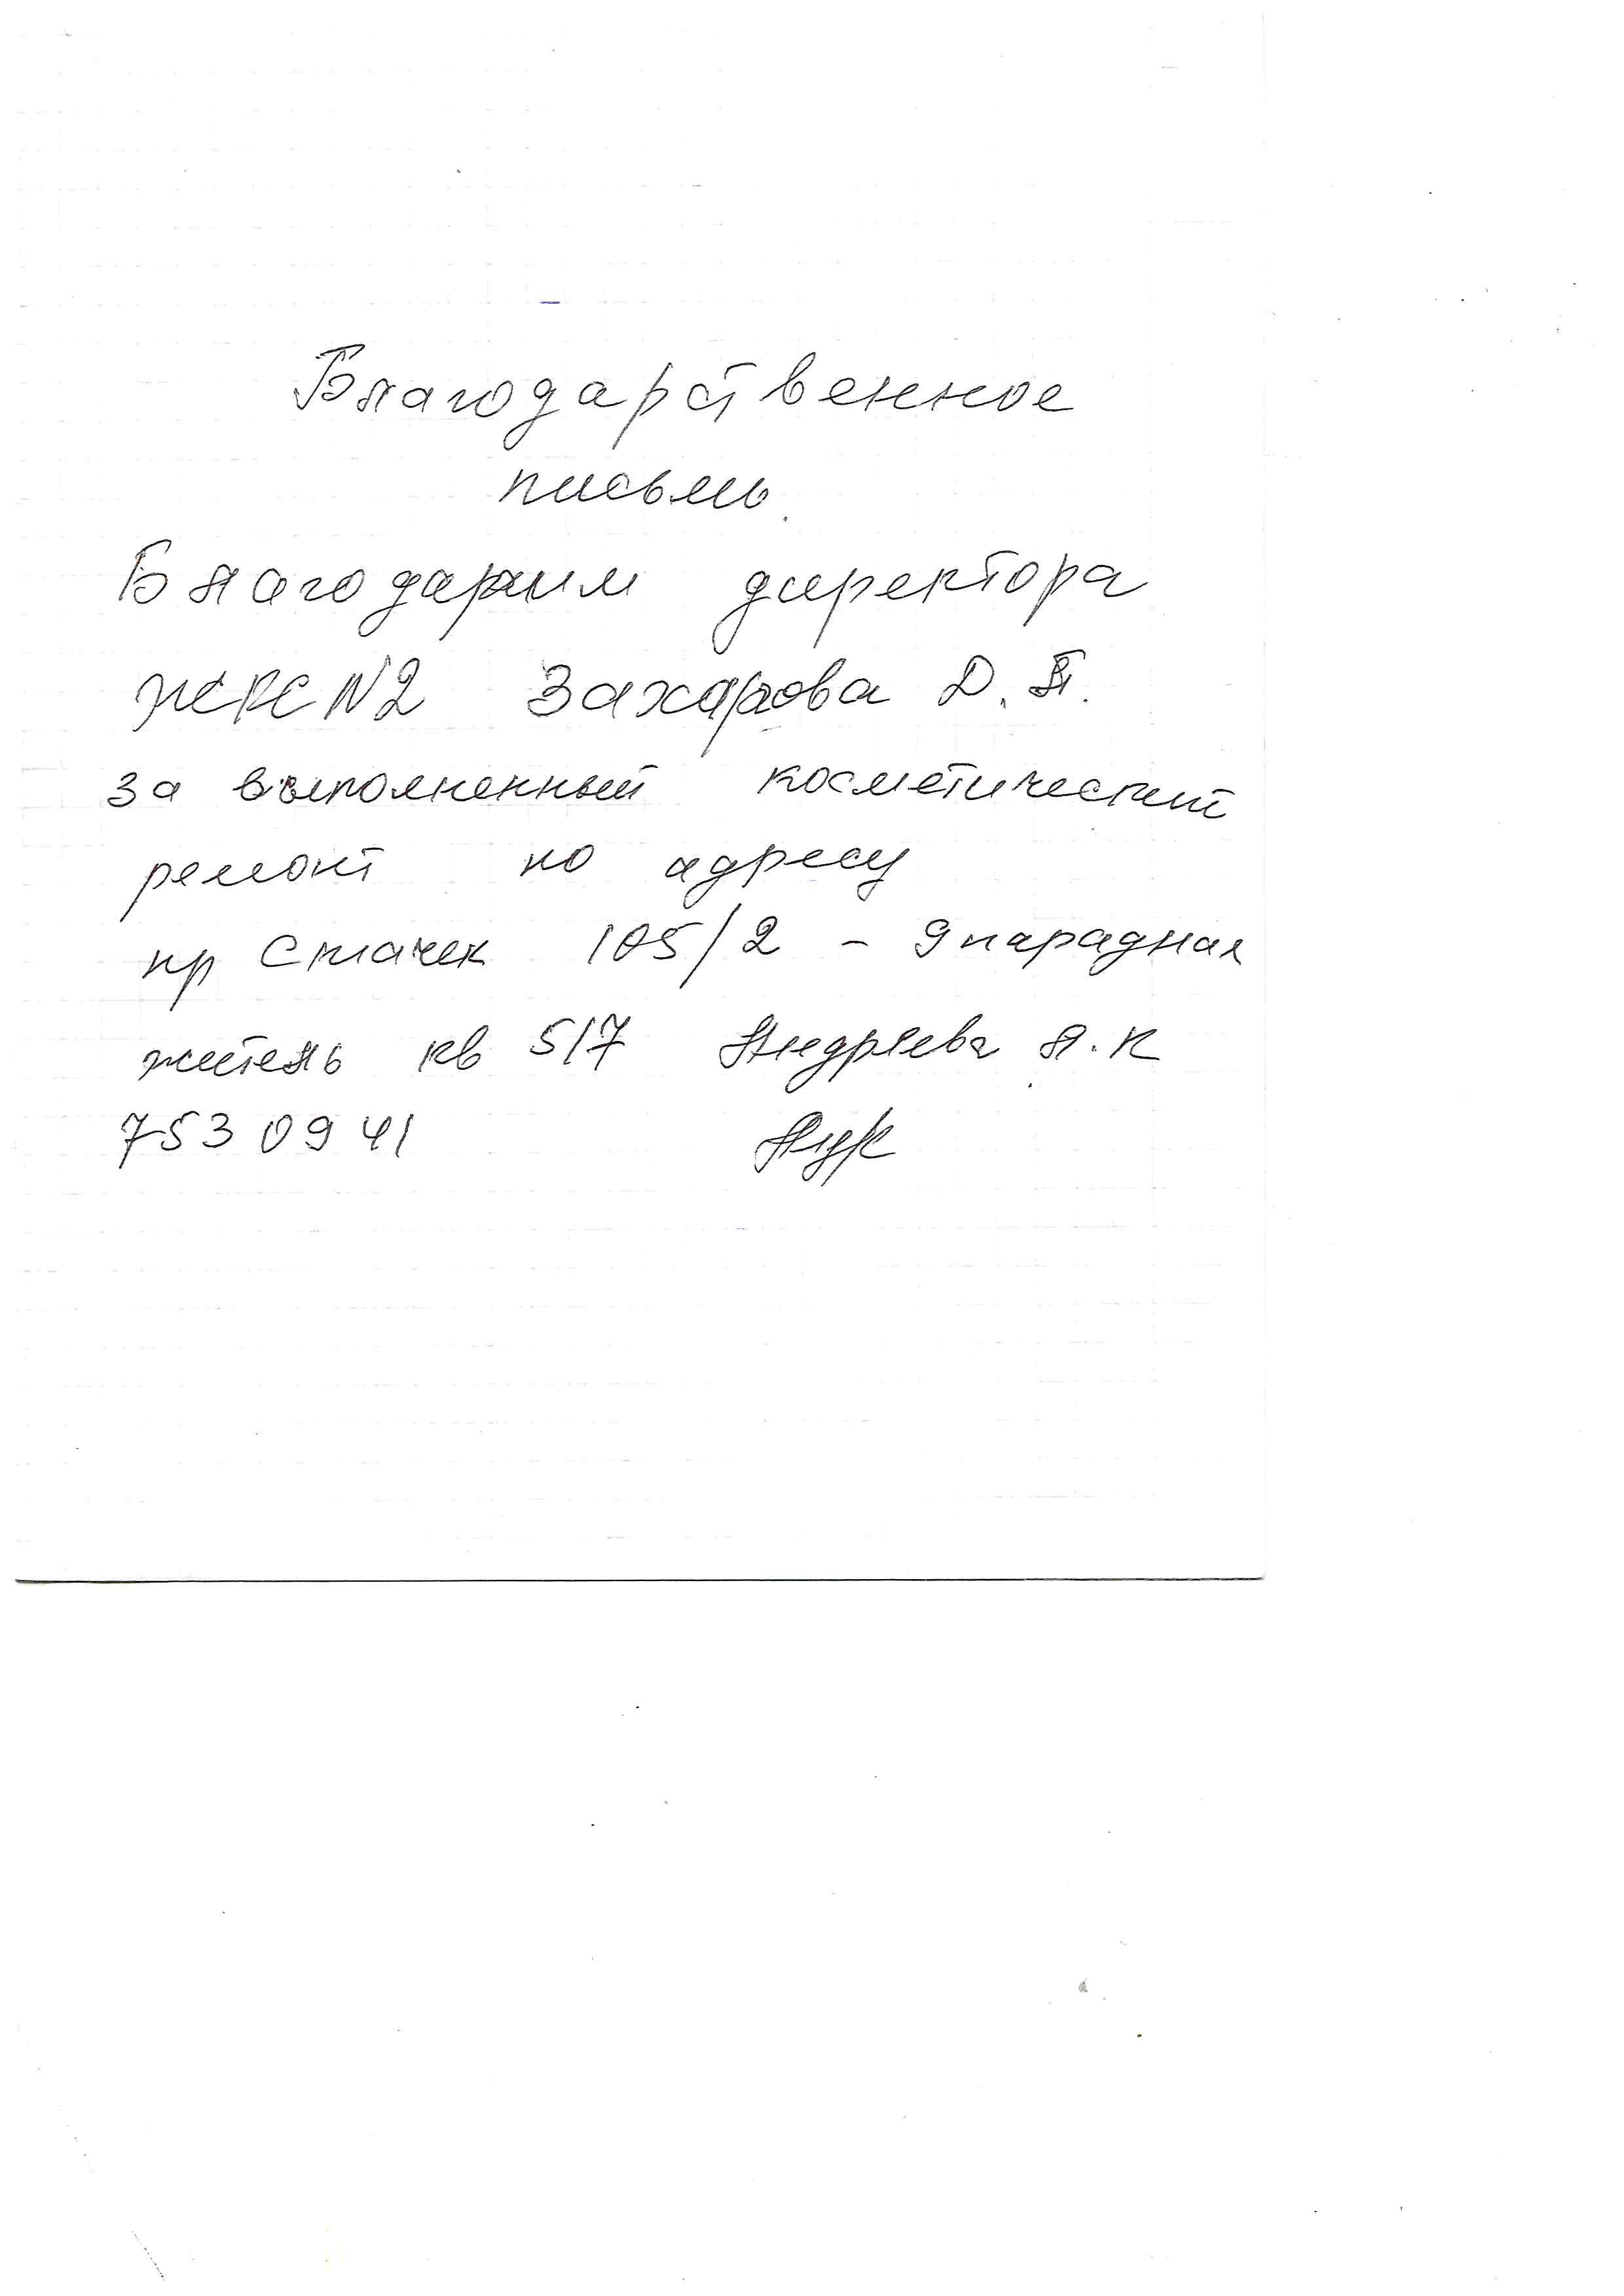 Благодарственное
письмо
Благодарим директора
ЖКС N2 Захарова Д.
за выполненный косметический
ремонт по адресу
пр Стачек 105/2 - 9 парадная
житель кв 517 Андреева А.К
753 09 41